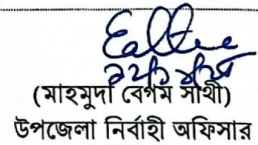 (মাহমুদা বেগম সাথী)
উপজেলা নির্বাহী অফিসার